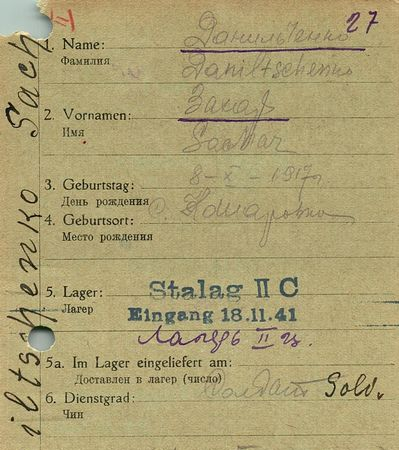 27
II
1. Name: Данильченко
Фамилия
Daniltschenko
2. Vornamen: Захар
Имя
Sachar
3. Geburtstag: 8-X-1917
День рождения
4. Geburtsort: с.
Место рождения
5. Lager: Stalag II C
Лагерь
Eingang 18.11.41
Лагерь II
5a. Im Lager eingeliefert am:
Доставлен в лагерь (число)
6. Dienstgrad: Солдат Sold.
Чин
iltschenko Sach